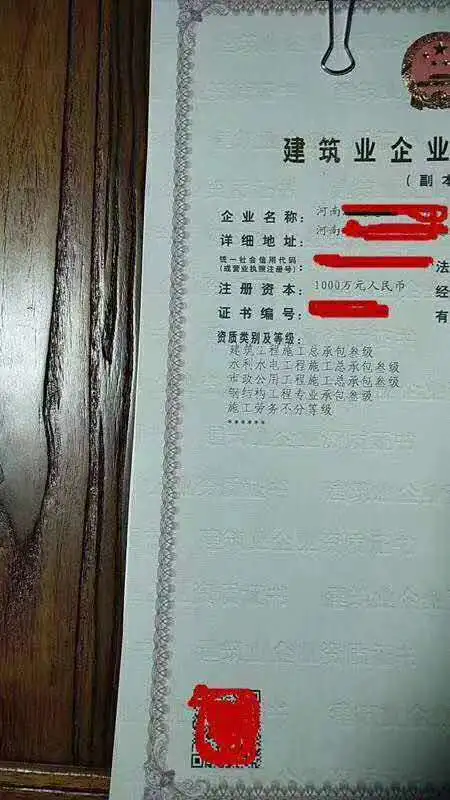 建筑业企业
（副本
企业名称：河南
详细地址：河南
统一社会信用代码
（或营业执照注册号）：
法
注册资本：1000万元人民币
经
证书编号：
有
资质类别及等级：
建筑工程施工总承包叁级
水利水电工程施工总承包叁级
市政公用工程施工总承包叁级
钢结构工程专业承包叁级
施工劳务不分等级
******